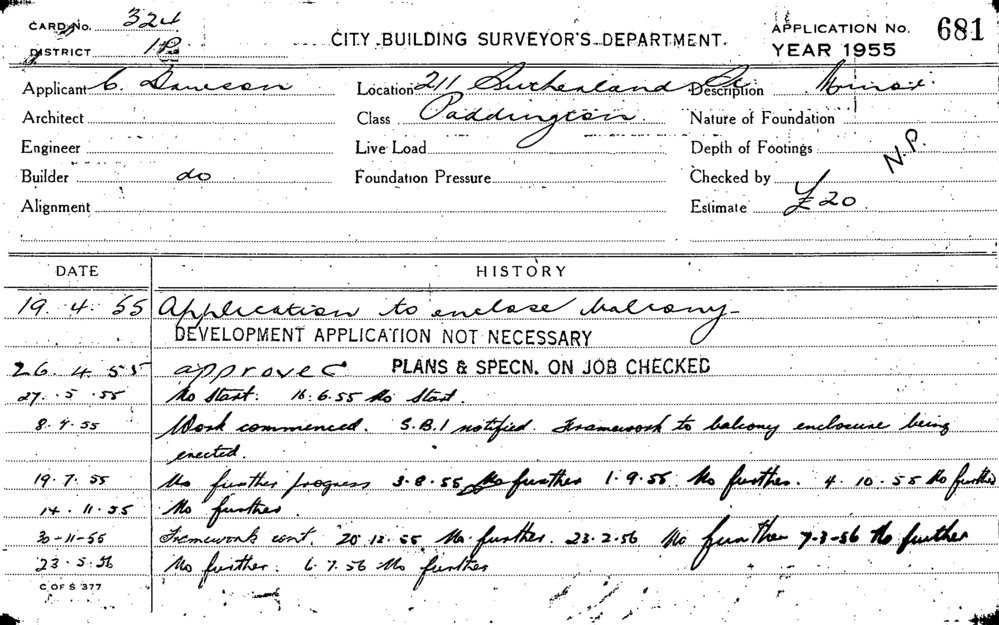 CARD No. 324
DISTRICT 1P
CITY BUILDING SURVEYOR'S DEPARTMENT.
APPLICATION No. 681
YEAR 1955
Applicant C. Dawson Location 211 Sutherland St. Description Minor.
Architect Class Paddington. Nature of Foundation
Engineer Live Load Depth of Footings N.P.
Builder do Foundation Pressure Checked by
Alignment Estimate £20.
DATE HISTORY
19. 4. 55 Application to enclose balcony
DEVELOPMENT APPLICATION NOT NECESSARY
26. 4. 55 approved PLANS & SPECN. ON JOB CHECKED
27. 5. 55 No start. 16.6.55 No start.
8. 7. 55 Work commenced. S.B.I notified. Framework to balcony enclosure being
erected.
19. 7. 55 No further progress 3.8.55 No further 1.9.55 No further. 4.10.55 No further
14. 11. 55 No further.
30-11-55 Framework cont. 20.12.55 No further. 23.2.56 No further 7-3-56 No further
23. 5. 56 No further. 6.7.56 No further
C OF S 377